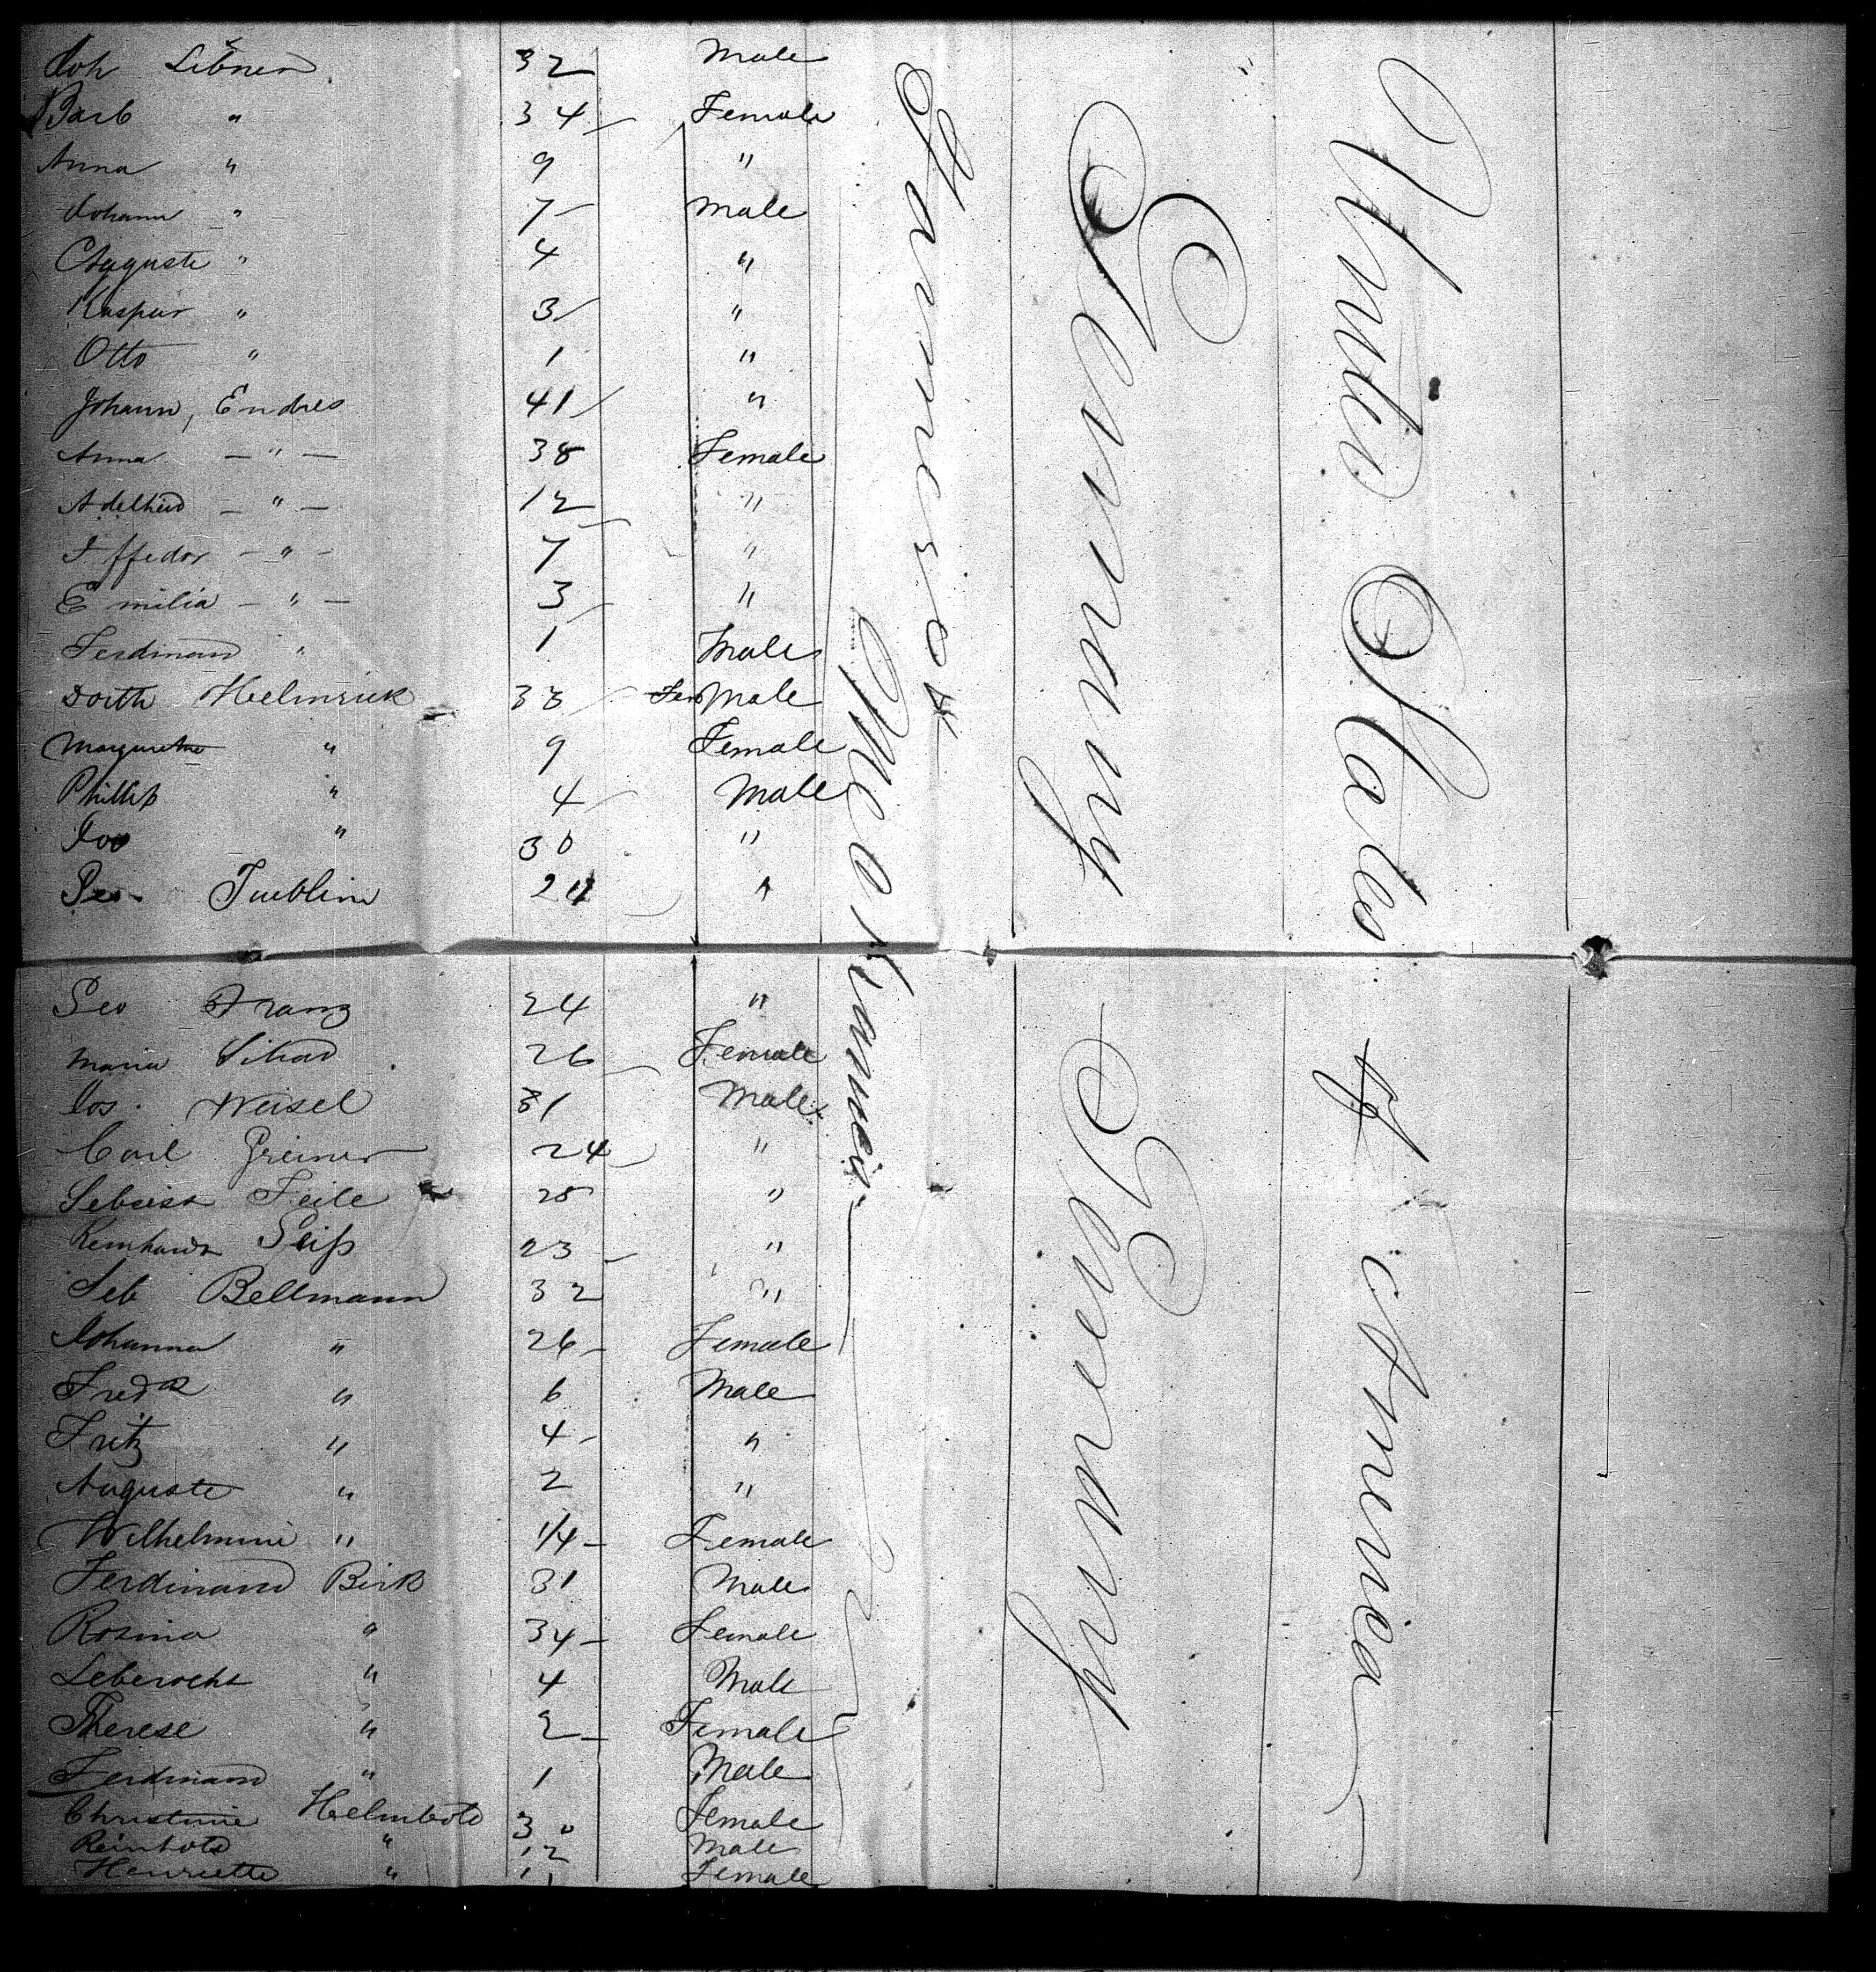 Joh Libner 32 Male
Barb " 34 Female
Anna " 9 "
Johann " 7 Male
Auguste " 4 "
Kaspar " 3 "
Otto " 1 "
Johann, Endres 41 "
Anna — " — 38 Female
Adelheid — " — 12 "
7 "
Emilia — " — 3 "
Ferdinand " 1 Male
Helmrick 38 Male
Margarethe " 9 Female
Phillip " 4 Male
" 30 "
"
Geo Franz 24 "
Maria 26 Female
Jos. Weisel 31 Male
Carl Greiner 24 "
Sebast Feile 25 "
Reinhardt Geiß 23 "
Seb Bellmann 32 "
Johanna " 26 Female
Fredk " 6 Male
Fritz " 4 "
Auguste " 2 "
Wilhelmine " 1/4 Female
Ferdinand Birk 31 Male
Rosina " 34 Female
Leberecht " 4 Male
Therese " 2 Female
Ferdinand " 1 Male
Christine Helmbold 30 Female
Reinhold " 12 Male
Henriette " 11 Female
Farmers &
Mechanics
Germany
Germany
United States of America